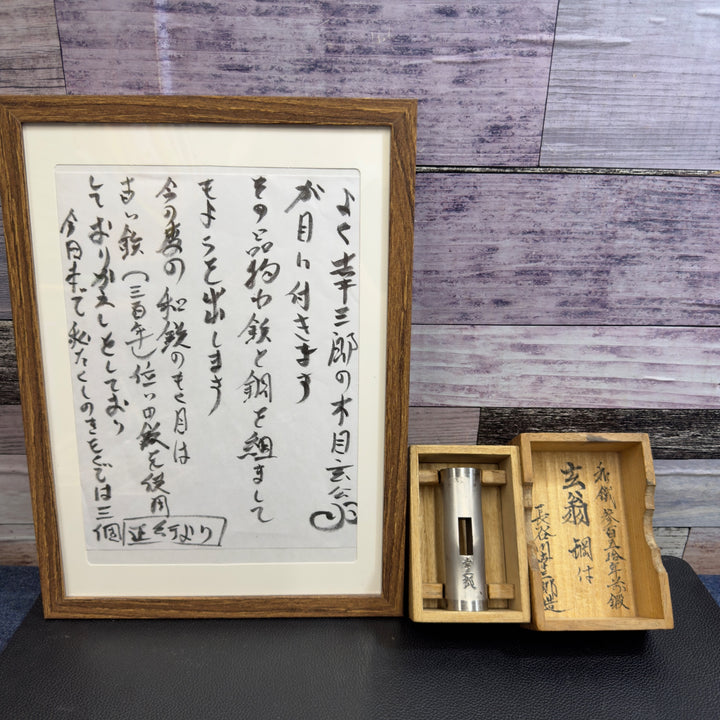 よく幸三郎の木目玄公
が目に付きます
その品物わ鉄と鋼を組まして
もようを出します
今の麦の和鉄のもく目は
古い鉄(三百年)位いの鉄を使用
しておりかえしをしており
今日まで私たくしのきをくでは三個
正行なり
玄翁
和鉄 参百五拾年前鍛
玄翁 鋼付
長谷川幸三郎造